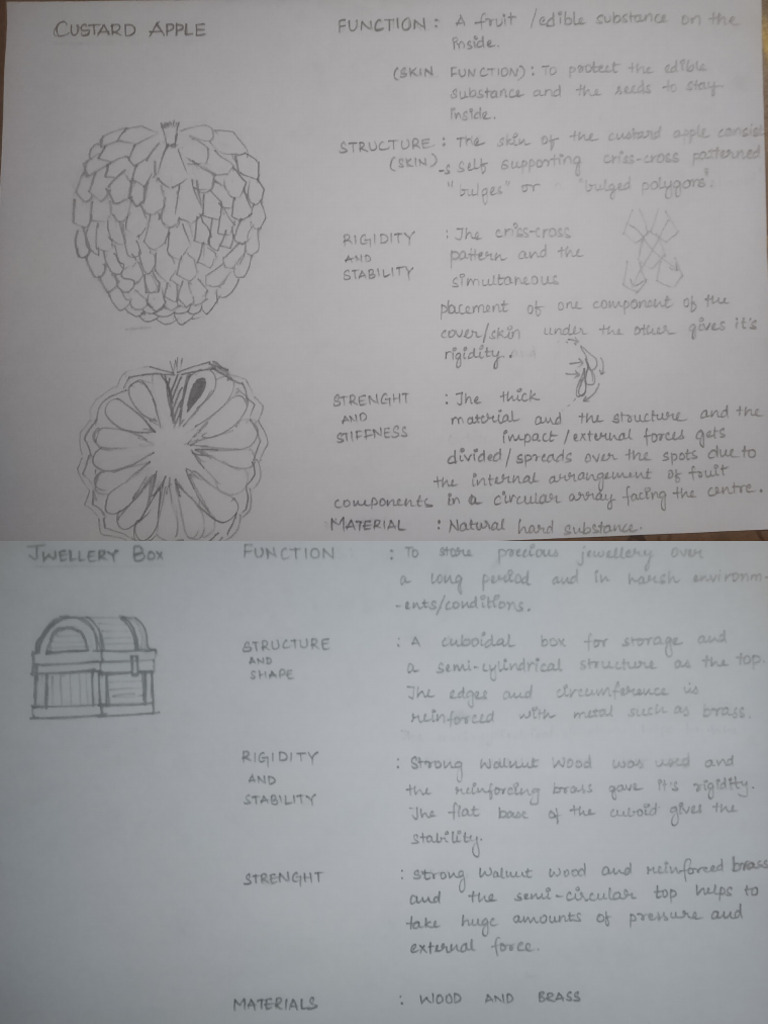 CUSTARD APPLE
FUNCTION : A fruit /edible substance on the
inside.
(SKIN FUNCTION) : To protect the edible
substance and the seeds to stay
inside.
STRUCTURE : The skin of the custard apple consist
(SKIN) -s self supporting criss-cross patterned
"bulges" or "bulged polygons".
RIGIDITY : The criss-cross
AND pattern and the
STABILITY simultaneous
placement of one component of the
cover/skin under the other gives it's
rigidity.
STRENGHT : The thick
AND material and the structure and the
STIFFNESS impact /external forces gets
divided/spreads over the spots due to
the internal arrangement of fruit
components in a circular array facing the centre.
MATERIAL : Natural hard substance.
JWELLERY BOX
FUNCTION : To store precious jewellery over
a long period and in harsh environm-
-ents/conditions.
STRUCTURE : A cuboidal box for storage and
AND a semi-cylindrical structure as the top.
SHAPE The edges and circumference is
reinforced with metal such as brass.
RIGIDITY : Strong Walnut Wood was used and
AND the reinforcing brass gave it's rigidity.
STABILITY The flat base of the cuboid gives the
stability.
STRENGHT : Strong Walnut Wood and reinforced brass
and the semi-circular top helps to
take huge amounts of pressure and
external force.
MATERIALS : WOOD AND BRASS